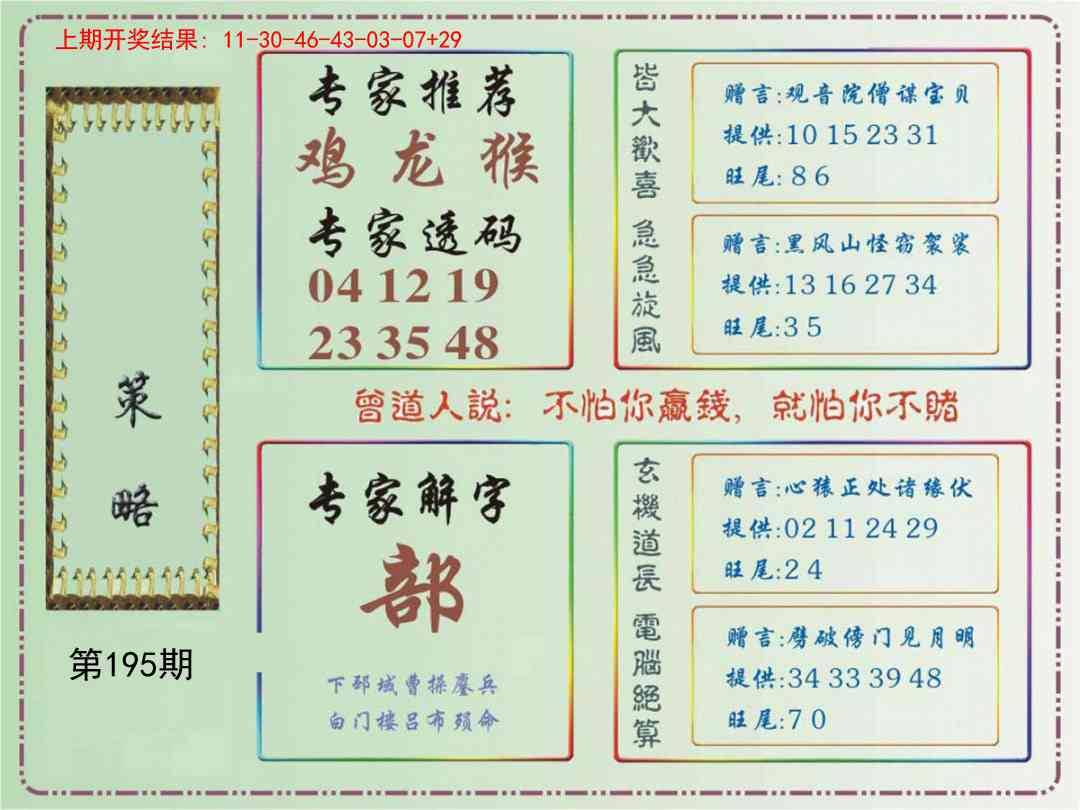 上期开奖结果: 11-30-46-43-03-07+29
策略
第195期
专家推荐
鸡 龙 猴
专家透码
04 12 19
23 35 48
皆大歡喜
赠言:观音院僧谋宝贝
提供:10 15 23 31
旺尾: 8 6
急急旋風
赠言:黑风山怪窃袈裟
提供:13 16 27 34
旺尾:3 5
曾道人説: 不怕你贏錢, 就怕你不賭
专家解字
部
下邳城曹操鏖兵
白门楼吕布殒命
玄機道長
赠言:心猿正处诸缘伏
提供:02 11 24 29
旺尾:2 4
電腦絕算
赠言:劈破傍门见月明
提供:34 33 39 48
旺尾:7 0